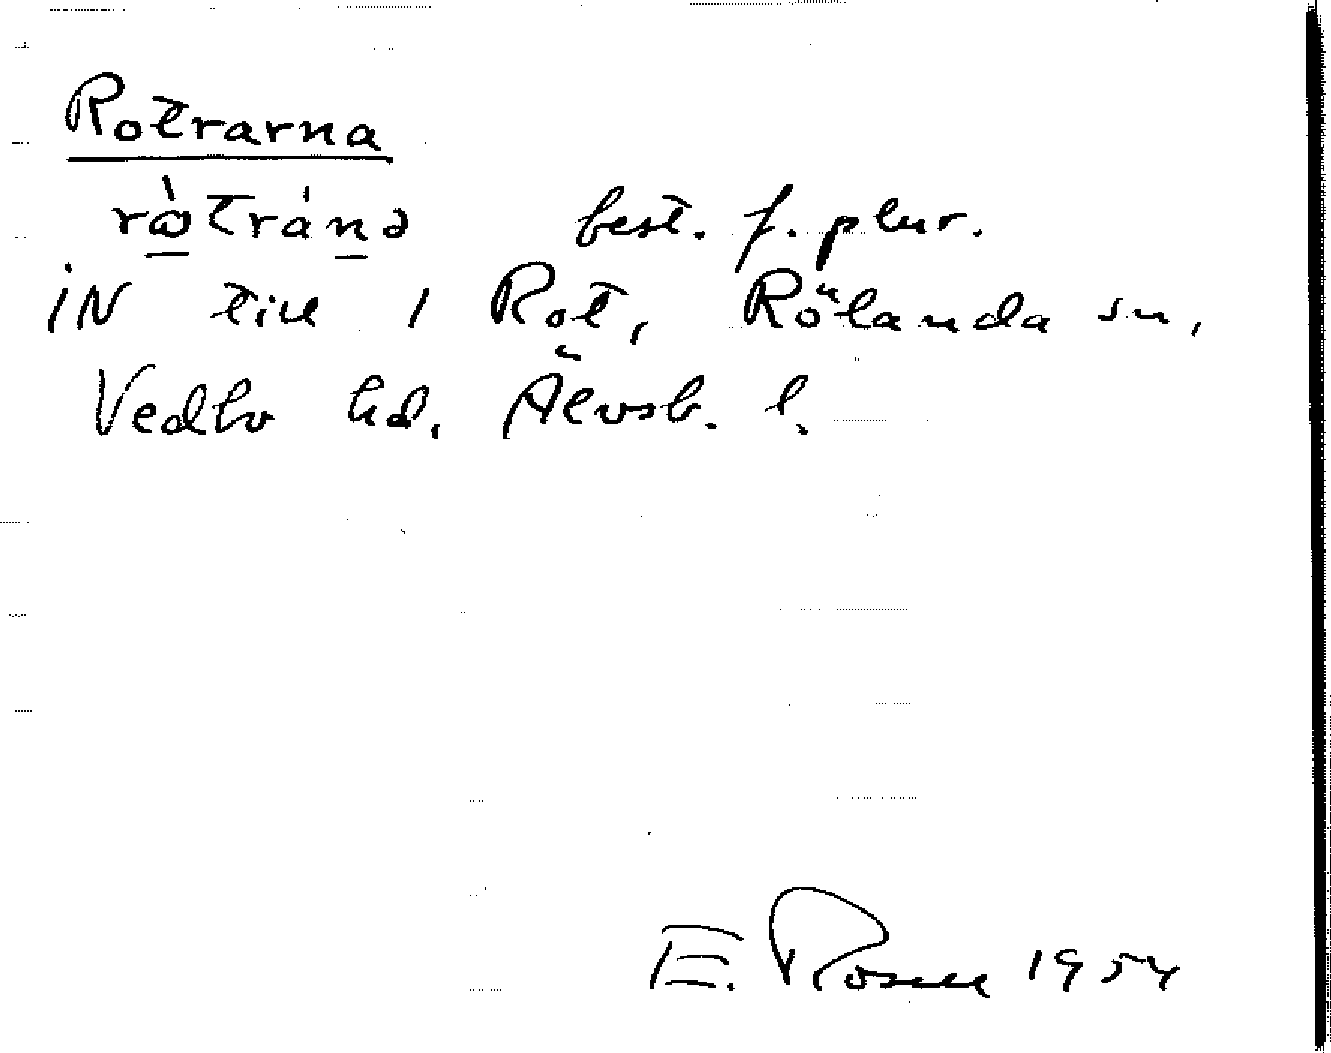 Rotrarna
rὼtránə best. f. plur.
iN till 1 Rot, Rölanda sn,
Vedbo hd, Älvsb. l.
E. Rosell 1954